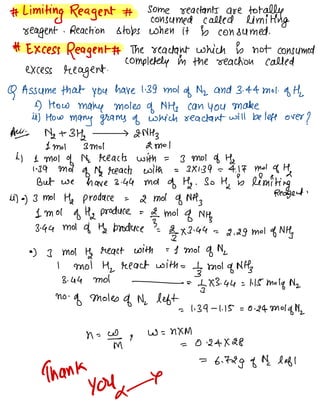 # Limiting Reagent # Some reactants are totally
consumed called limiting
reagent. Reaction stops when it is consumed.
# Excess Reagent # The reactant which is not consumed
completely in the reaction called
excess reagent.
Q Assume that you have 1.39 mol of N₂ and 3.44 mol of H₂
i) How many moles of NH₃ can you make
ii) How many grams of which reactant will be left over?
Ans: N₂ + 3H₂ → 2NH₃
1 mol 3 mol 2 mol
i) 1 mol of N₂ reacts with = 3 mol of H₂
1.39 mol of N₂ reacts with = 3×1.39 = 4.17 mol of H₂
But we have 3.44 mol of H₂. So H₂ is limiting
Reagent.
ii) •) 3 mol H₂ produce = 2 mol of NH₃
1 mol of H₂ produce = 2/3 mol of NH₃
3.44 mol of H₂ produce = 2/3 × 3.44 = 2.29 mol of NH₃
•) 3 mol H₂ react with = 1 mol of N₂
1 mol H₂ react with = 1/3 mol of NH₃
3.44 mol = 1/3 × 3.44 = 1.15 mol of N₂
no. of moles of N₂ left
= 1.39 - 1.15 = 0.24 mol of N₂
n = w/M , w = n×M
= 0.24 × 28
= 6.72 g of N₂ left
Thank
you